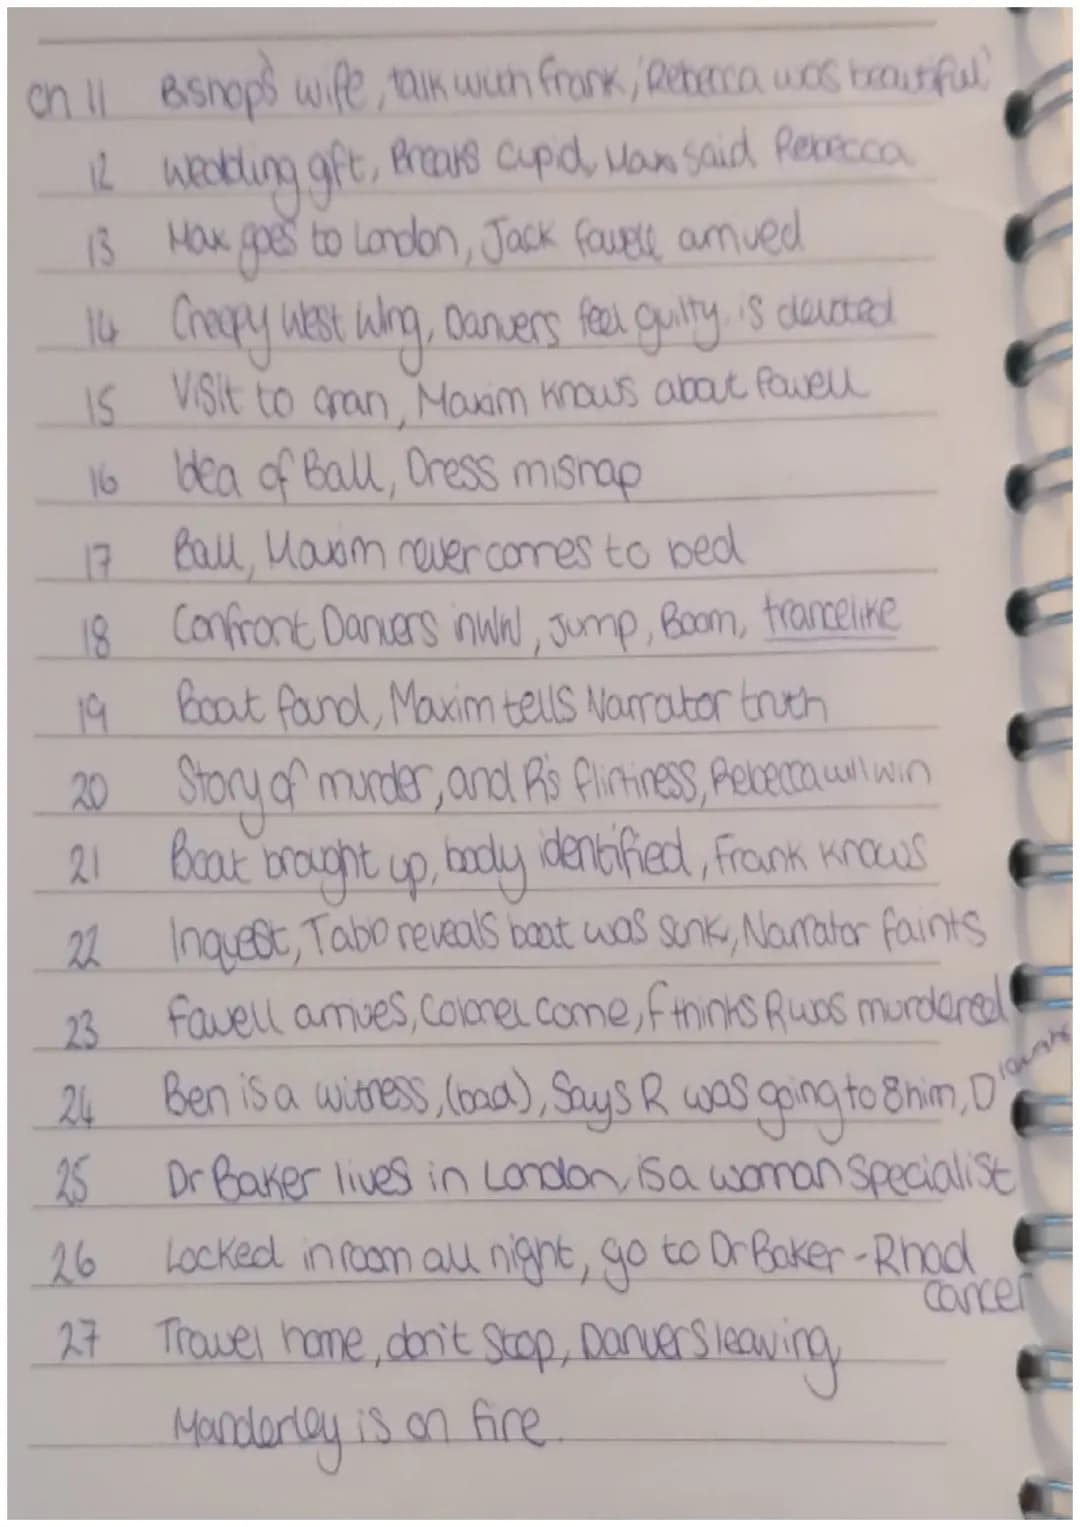 ch 11 Bishop's wife, talk with Frank, 'Rebecca was beautiful'
12 Wedding gft, Breaks Cupid, Max said Rebecca
13 Max goes to London, Jack Favell arrived
14 Creepy West Wing, Danvers feel guilty, is devoted
15 Visit to Gran, Maxim knows about Favell
16 Idea of Ball, Dress mishap
17 Ball, Maxim never comes to bed
18 Confront Danvers in WW, Jump, Boom, trancelike
19 Boat found, Maxim tells Narrator truth
20 Story of murder, and R's flirtiness, Rebecca will win
21 Boat brought up, body identified, Frank knows
22 Inquest, Tabb reveals boat was sunk, Narrator faints
23 Favell arrives, Colonel come, F thinks R was murdered
24 Ben is a witness, (bad), Says R was going to 8 him, D
25 Dr Baker lives in London, is a woman specialist
26 Locked in room all night, go to Dr Baker - R had
cancer
27 Travel home, don't stop, Danvers leaving,
Manderley is on fire.